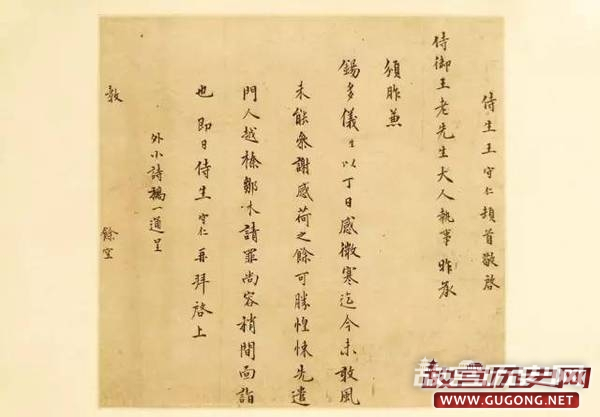 侍生王守仁頓首敬啓
侍御王老先生大人執事昨承
頒胙兼
錫多儀生以丁日感微寒迄今未敢風
未能參謝感荷之餘可勝惶悚先遣
門人越榛鄒木請罪尚容稍間面詣
也即日侍生守仁再拜啓上
外小詩稿一通呈
教
餘空
故宫历史网
WWW.GUGONG.NET